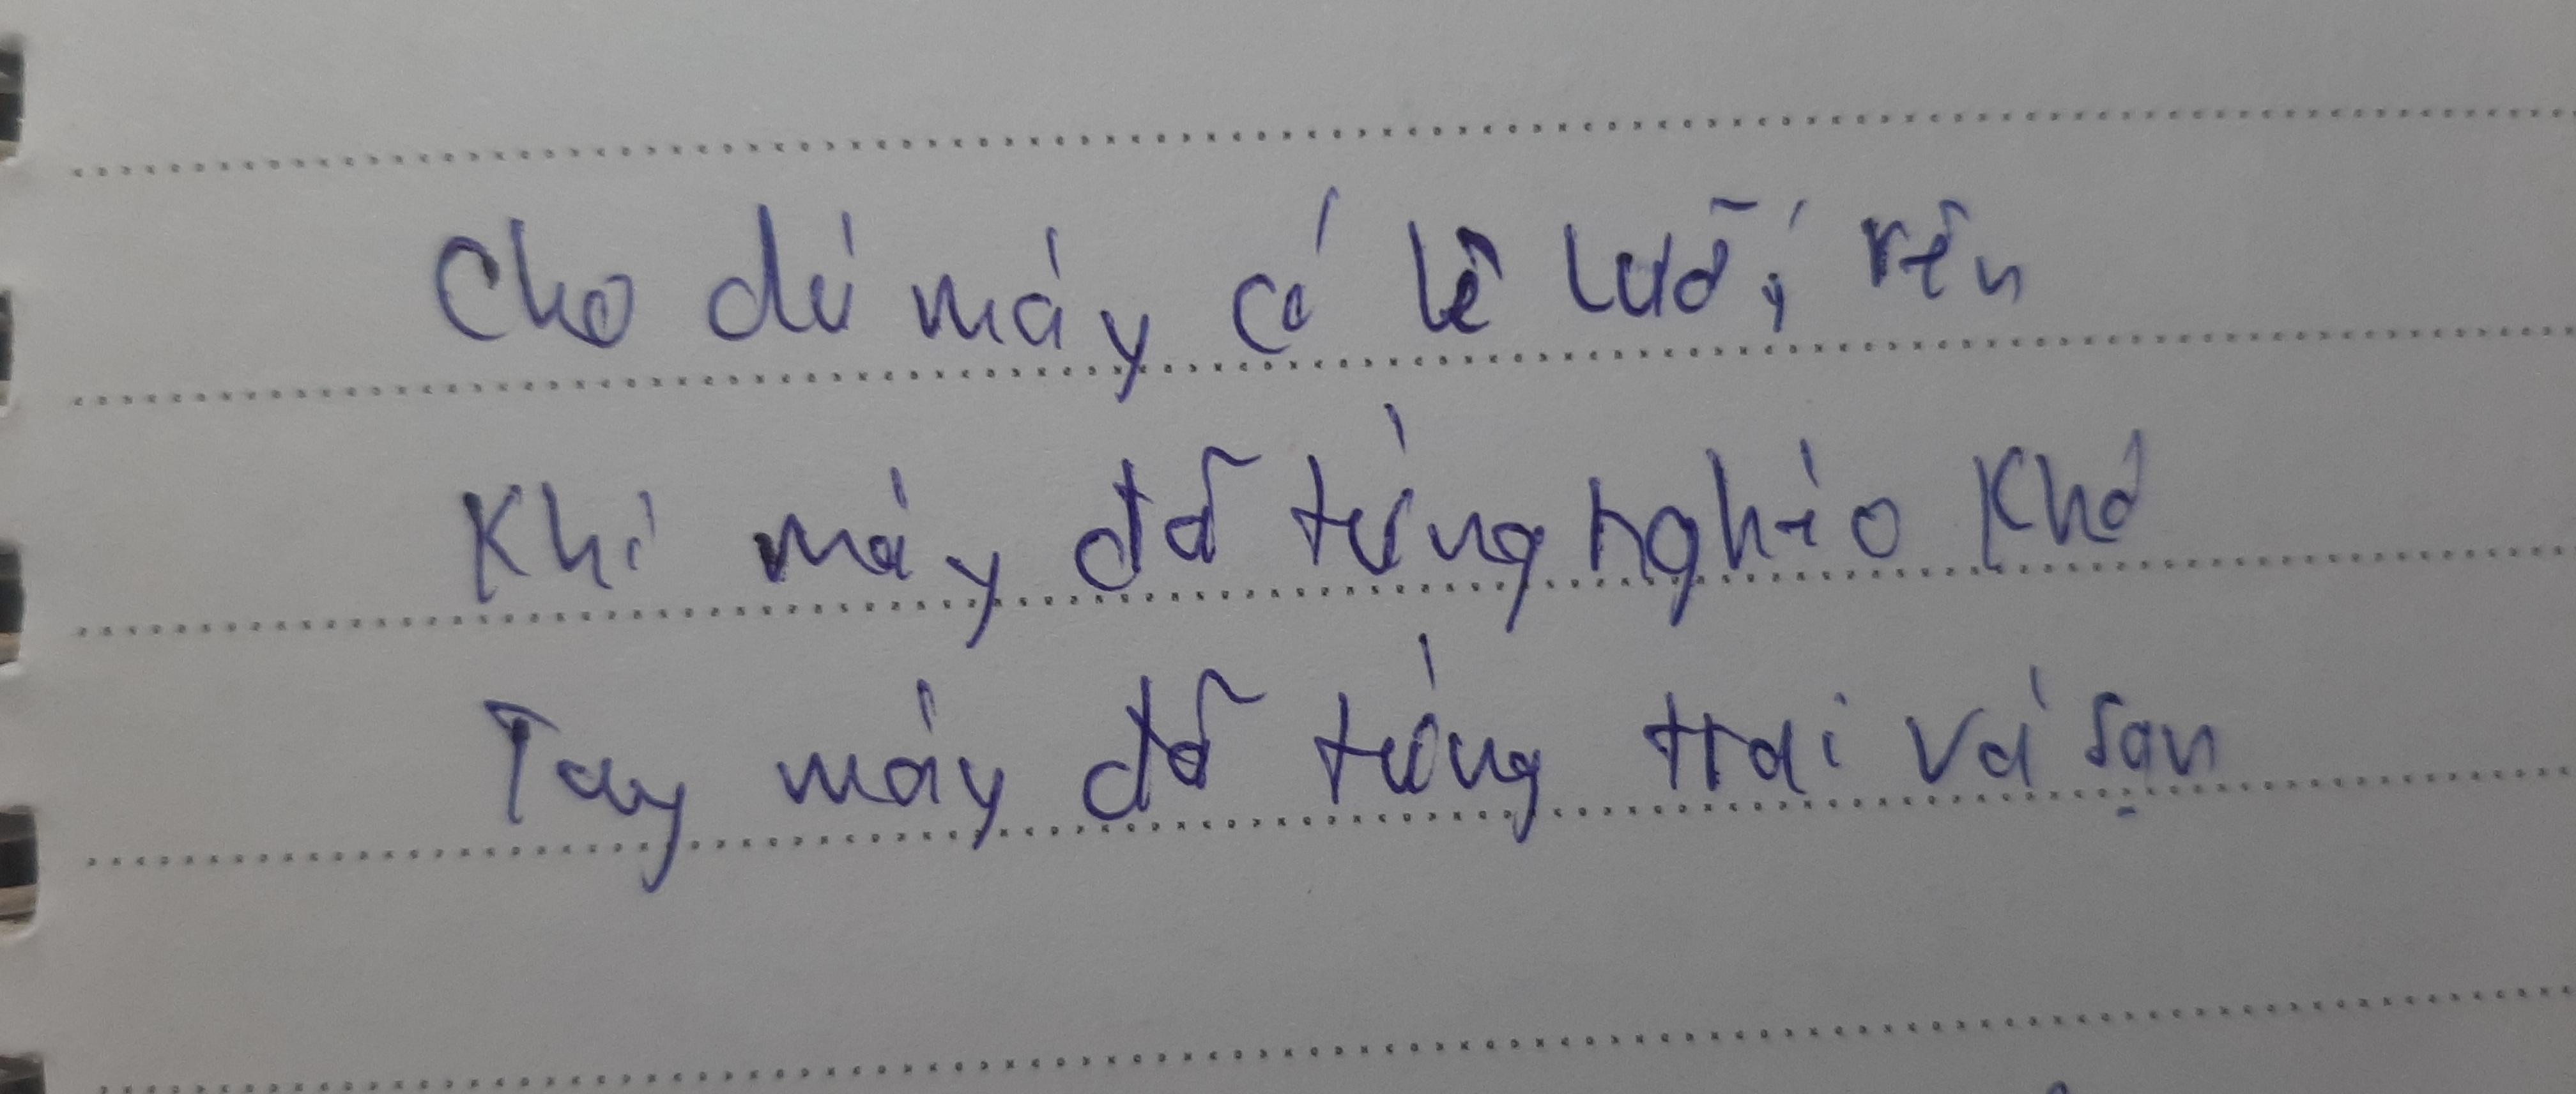 Cho dù mày có lê lưỡi, rên
Khi mày đã từng nghèo khó
Tay mày đã từng trai và sạn